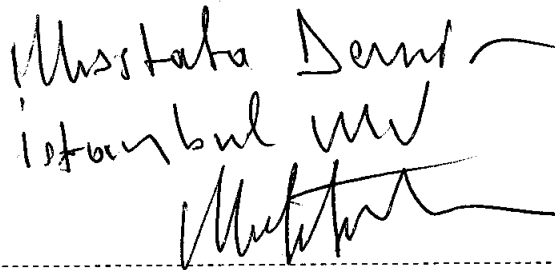 Mustafa Demir
İstanbul MV